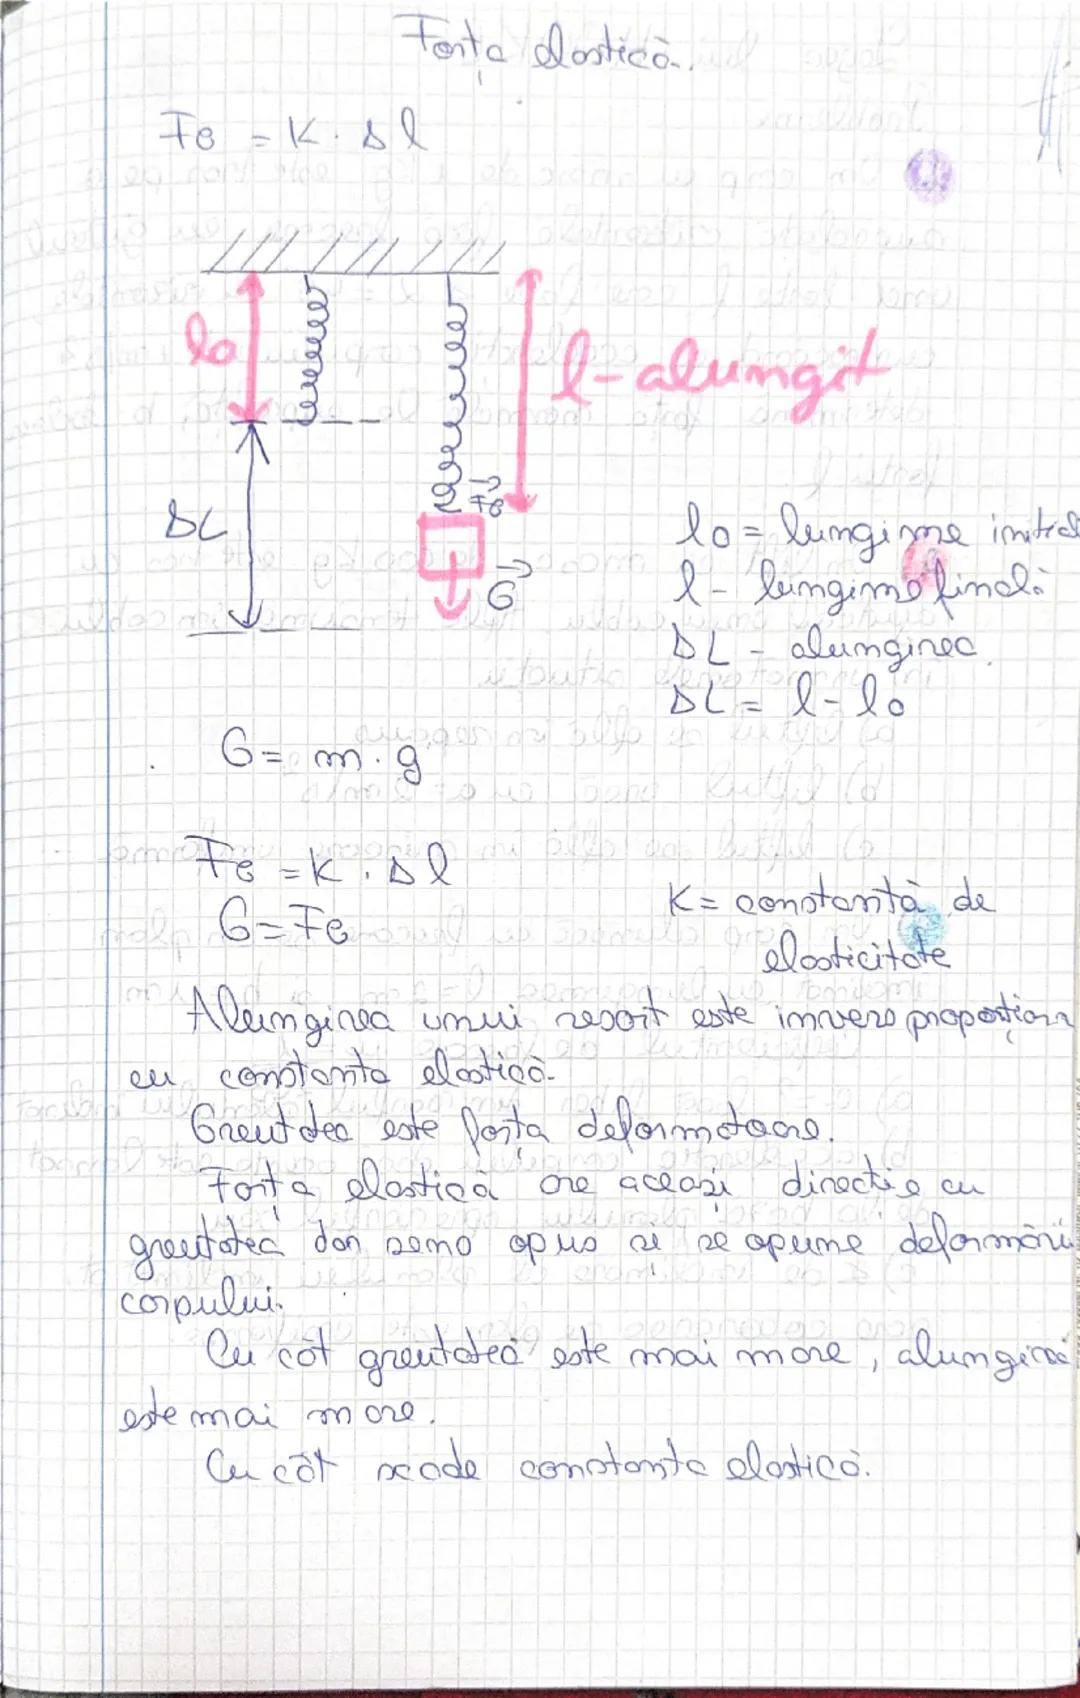 Forța elastică.
Fe = K · Δl
l0
l-alungit
ΔL
Fe
G
l0 = lungime iniția
l - lungime finală
ΔL - alungirea
ΔL = l - l0
G = m · g
Fe = K · Δl
G = Fe
K = constantă de
elasticitate
Alungirea unui resort este invers proporțion
cu constanta elastică.
Greutatea este forța deformatoare.
Forța elastică are aceași direcție cu
greutatea dar sens opus și se opune deformări
corpului.
Cu cât greutatea este mai mare, alungirea
este mai mare.
Cu cât scade constanta elastică.